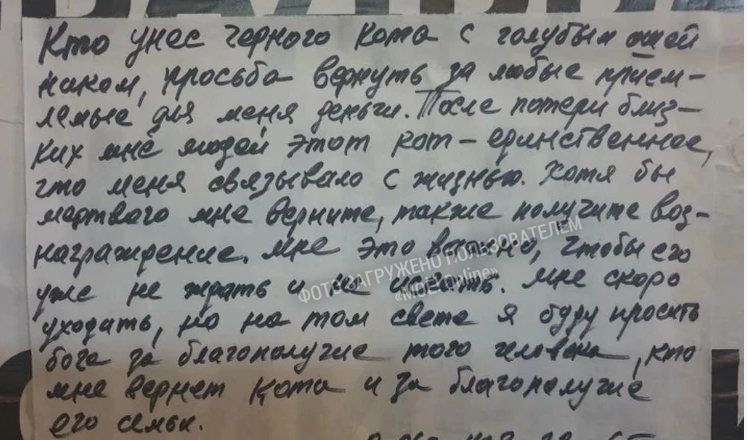 Кто унес черного кота с голубым ошей
ником, просьба вернуть за любые прием-
лемые для меня деньги. После потери близ-
ких мне людей этот кот – единственное,
что меня связывало с жизнью. Хотя бы
мертвого мне верните, также получите воз-
награждение. Мне это важно, чтобы его
уже не ждать и не искать. Мне скоро
уходить, но на том свете я буду просить
бога за благополучие того человека, кто
мне вернет кота и за благополучие
его семьи.
ФОТО ЗАГРУЖЕНО ПОЛЬЗОВАТЕЛЕМ